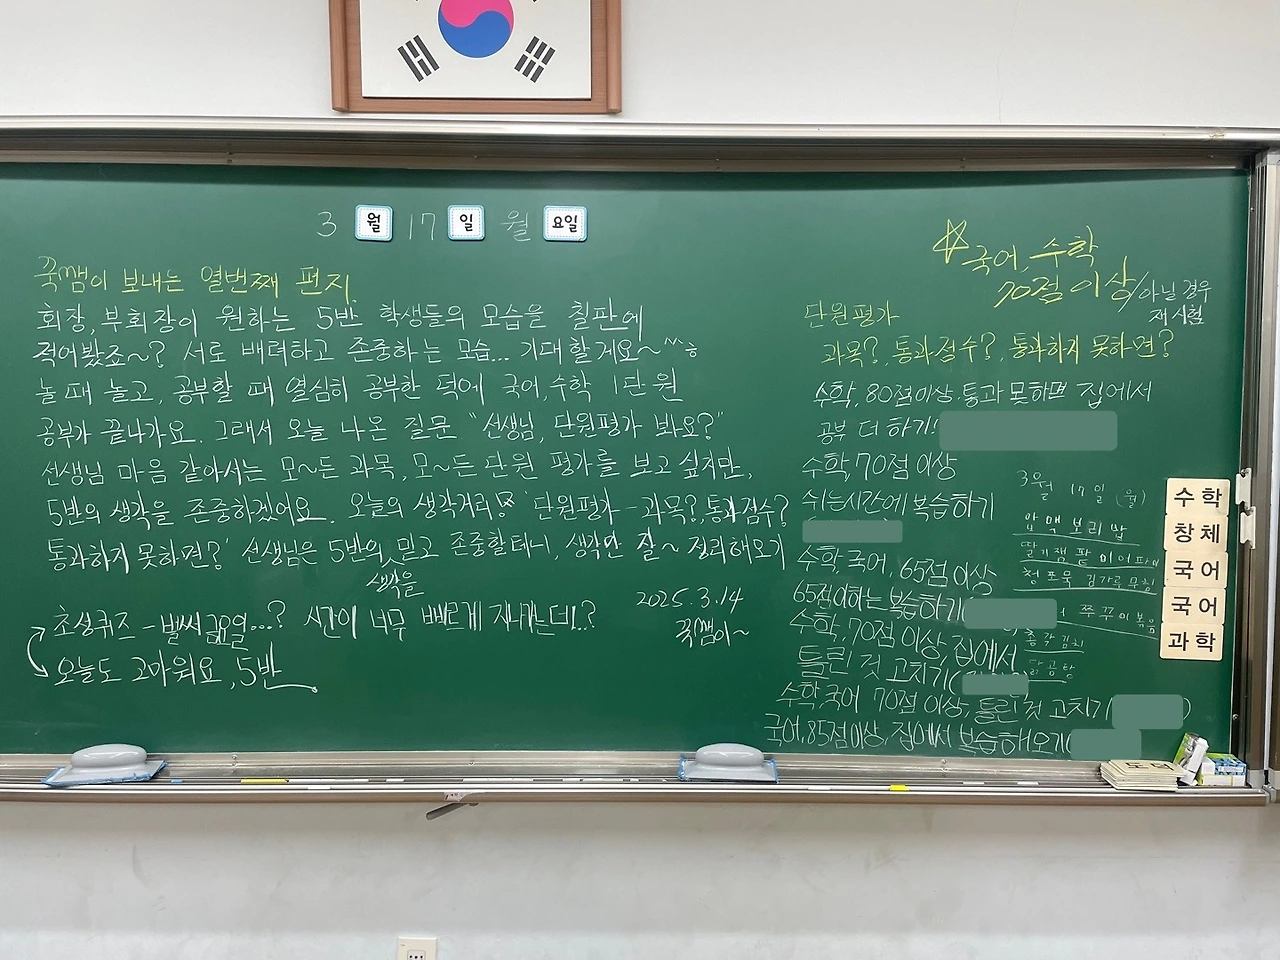 3 월 17 일 월 요일
꾹쌤이 보내는 열번째 편지.
회장, 부회장이 원하는 5반 학생들의 모습을 칠판에
적어봤죠~? 서로 배려하고 존중하는 모습... 기대할게요~^^ㅎ
놀 때 놀고, 공부할 때 열심히 공부한 덕에 국어, 수학 1단원
공부가 끝나가요. 그래서 오늘 나온 질문 "선생님, 단원평가 봐요?"
선생님 마음 같아서는 모~든 과목, 모~든 단원 평가를 보고 싶지만,
5반의 생각을 존중하겠어요. 오늘의 생각거리! '단원평가 - 과목?, 통과점수?
통과하지 못하면?' 선생님은 5반의 믿고 존중할테니, 생각만 잘~ 정리해오기
생각을
초성퀴즈 - 벌써 금요일...? 시간이 너무 빠르게 지나가는데..?
오늘도 고마워요, 5반
2025. 3. 14
꾹쌤이~
☆국어, 수학
70점 이상/아닐 경우
재시험
단원평가
과목?, 통과점수?, 통과하지 못하면?
수학, 80점이상. 통과 못하면 집에서
공부 더 하기!
수학, 70점 이상
쉬는시간에 복습하기
수학, 국어, 65점 이상
65점이하는 복습하기(
수학, 70점 이상, 집에서
틀린 것 고치기(
수학, 국어 70점 이상, 틀린 것 고치기( )
국어, 85점이상, 집에서 복습해오기(
3월 17일 (월)
보리밥
딸기잼 팥 파이
청포묵 김가루 무침
쭈꾸미볶음
총각김치
닭곰탕
수학
창체
국어
국어
과학